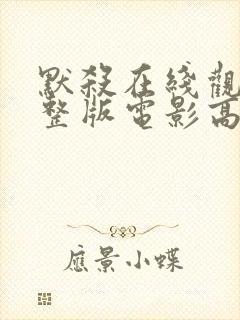 默殺在綫觀
整版電影高
應景小蝶